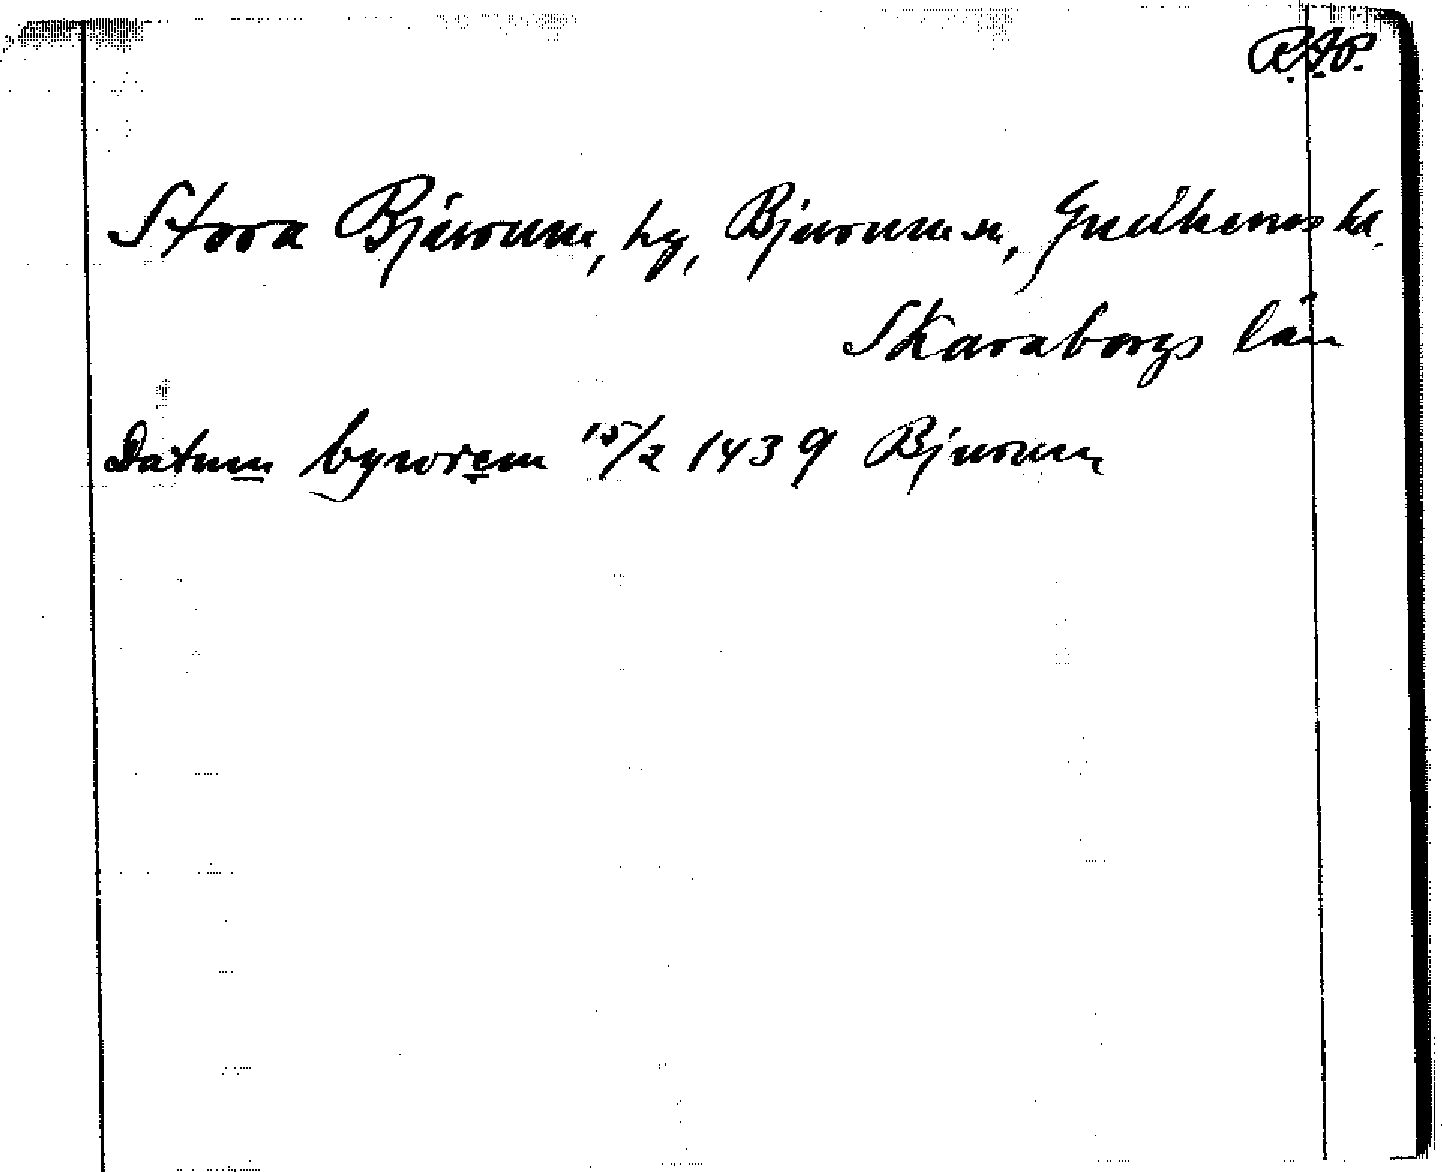 R.A.P.
Stora Bjurum, by, Bjurum sn, Gudhems hd.
Skaraborgs län
Datum bywrem 15/2 1439 Bjurum